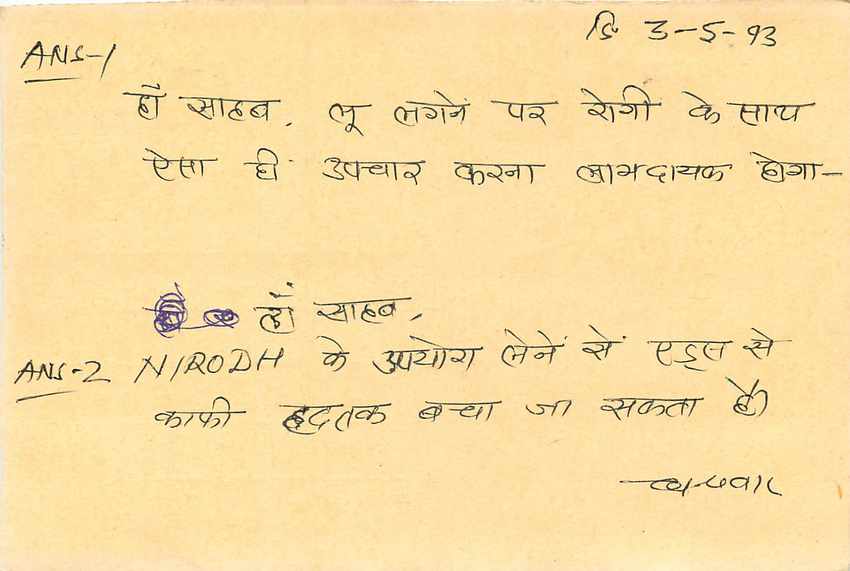 दि 3-5-93
ANS-1
हाँ साहब, लू लगनें पर रोगी के साथ
ऐसा ही उपचार करना लाभदायक होगा-
हाँ साहब,
ANS-2 NIRODH के उपयोग लेनें सें एड्स से
काफी हदतक बचा जा सकता है।